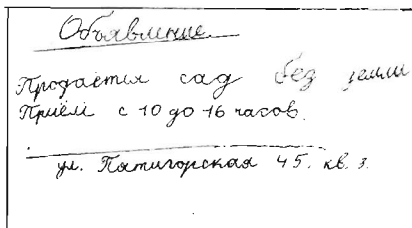 Объявление.
Продаётся сад без земли
Приём с 10 до 16 часов.
ул. Пятигорская 45. кв. 3.